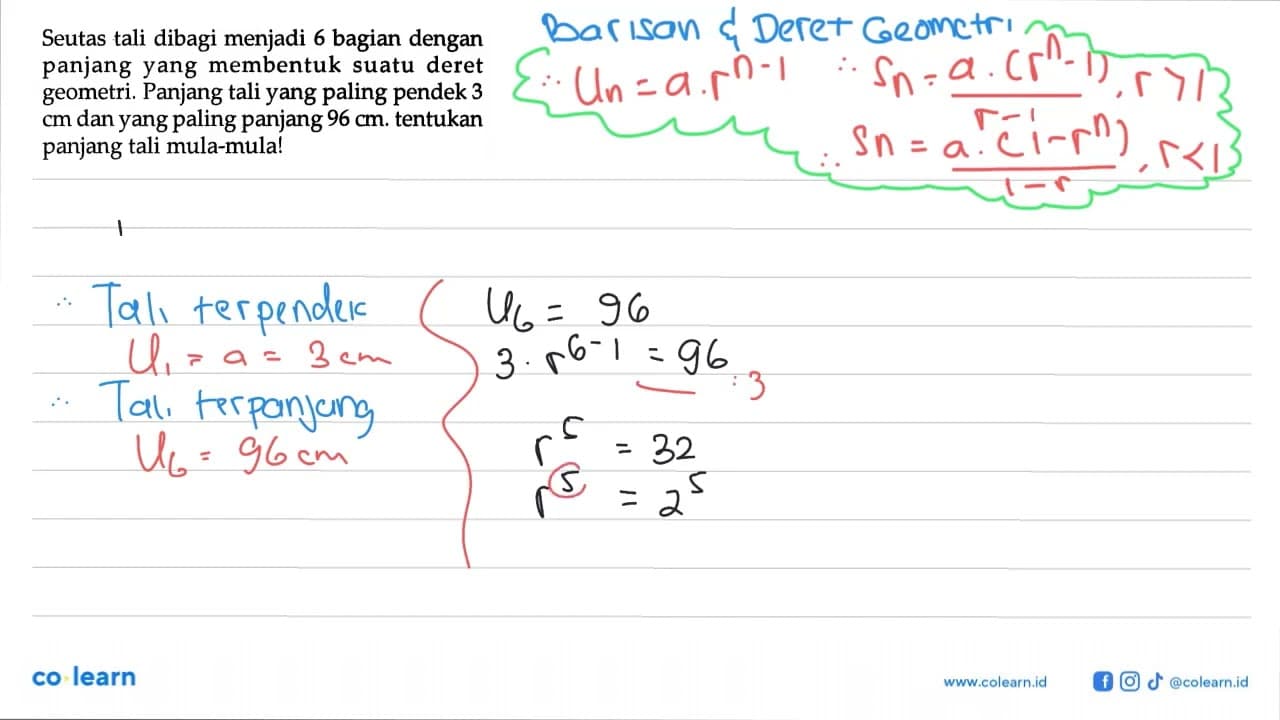 Seutas tali dibagi menjadi 6 bagian dengan
panjang yang membentuk suatu deret
geometri. Panjang tali yang paling pendek 3
cm dan yang paling panjang 96 cm. tentukan
panjang tali mula-mula!
Barisan & Deret Geometri
∴ Un = a.r^(n-1)
∴ Sn = a.(r^n-1) / r-1, r>1
∴ Sn = a.(1-r^n) / 1-r, r<1
∴ Tali terpendek
U₁ = a = 3 cm
∴ Tali terpanjang
U₆ = 96 cm
U₆ = 96
3.r^(6-1) = 96 :3
r^5 = 32
r^5 = 2^5
co·learn
www.colearn.id
@colearn.id